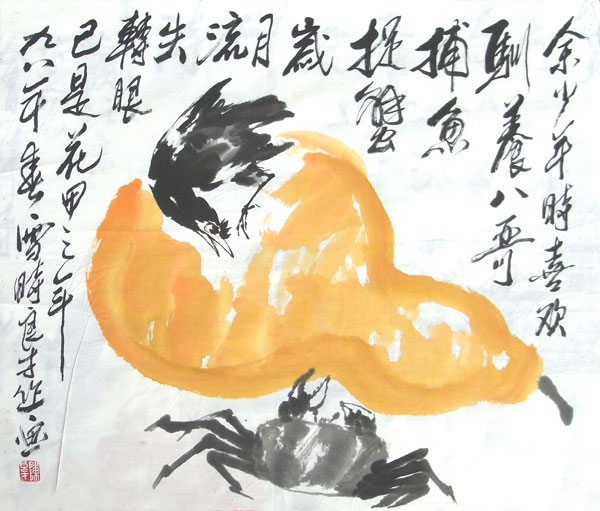 余少年時喜欢
馴養八哥
捕魚
捉蟹
歲
月
流
失
轉眼
已是花甲之年
九八年春雪時良才作画